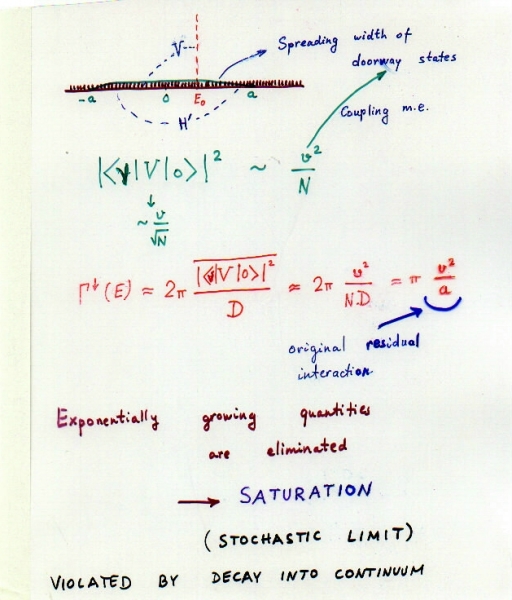 V
Spreading width of
doorway states
-a 0 E₀ a
H'
Coupling m.e.
|<γ|V|0>|² ~ v²/N
↓
~ v/√N
Γ↓(E) ≈ 2π \overline{|<γ|V|0>|²}/D ≈ 2π v²/N·D = π v²/a
original residual
interaction
Exponentially growing quantities
are eliminated
→ SATURATION
(STOCHASTIC LIMIT)
VIOLATED BY DECAY INTO CONTINUUM